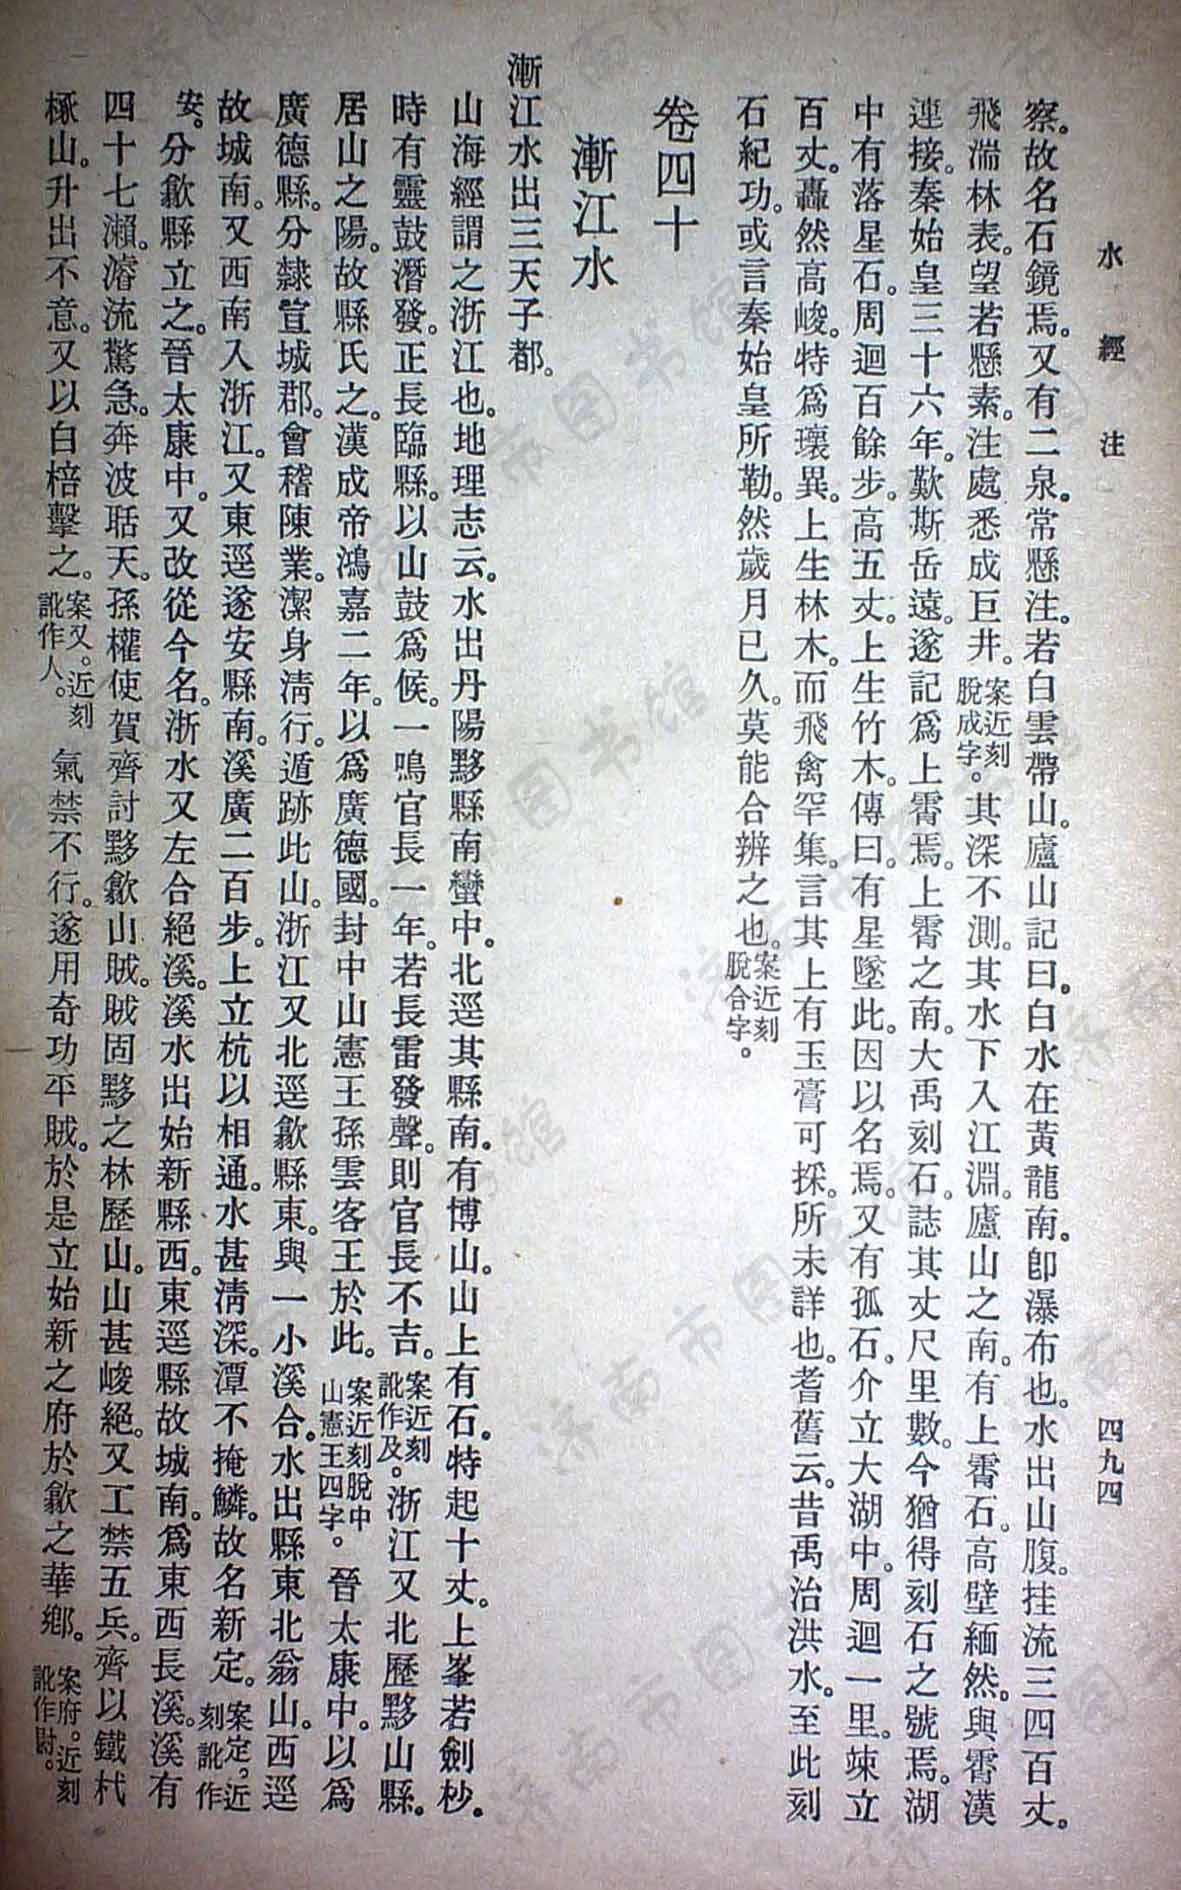 水經注
四九四
察。故名石鏡焉。又有二泉。常懸注。若白雲帶山。廬山記曰。白水在黃龍南。卽瀑布也。水出山腹。挂流三四百丈。
飛湍林表。望若懸素。注處悉成巨井。案近刻脫成字。其深不測。其水下入江淵。廬山之南。有上霄石。高壁緬然。與霄漢
連接。秦始皇三十六年。歎斯岳遠。遂記爲上霄焉。上霄之南。大禹刻石。誌其丈尺里數。今猶得刻石之號焉。湖
中有落星石。周迴百餘步。高五丈。上生竹木。傳曰。有星墜此。因以名焉。又有孤石。介立大湖中。周迴一里。竦立
百丈。矗然高峻。特爲瓌異。上生林木。而飛禽罕集。言其上有玉膏可採。所未詳也。耆舊云。昔禹治洪水。至此刻
石紀功。或言秦始皇所勒。然歲月已久。莫能合辨之也。案近刻脫合字。
卷四十
漸江水
漸江水出三天子都。
山海經謂之浙江也。地理志云。水出丹陽黟縣南蠻中。北逕其縣南。有博山。山上有石。特起十丈。上峯若劍杪。
時有靈鼓潛發。正長臨縣。以山鼓爲候。一鳴官長一年。若長雷發聲。則官長不吉。案近刻訛作及。浙江又北歷黟山縣。
居山之陽。故縣氏之。漢成帝鴻嘉二年。以爲廣德國。封中山憲王孫雲客王於此。案近刻脫中山憲王四字。晉太康中。以爲
廣德縣。分隸宣城郡。會稽陳業。潔身清行。遁跡此山。浙江又北逕歙縣東。與一小溪合。水出縣東北翁山。西逕
故城南。又西南入浙江。又東逕遂安縣南。溪廣二百步。上立杭以相通。水甚清深。潭不掩鱗。故名新定。案定，近刻訛作
安。分歙縣立之。晉太康中。又改從今名。浙水又左合絕溪。溪水出始新縣西。東逕縣故城南。爲東西長溪。溪有
四十七瀨。濬流驚急。奔波聒天。孫權使賀齊討黟歙山賊。賊固黟之林歷山。山甚峻絕。又工禁五兵。齊以鐵杙
椓山。升出不意。又以白棓擊之。案又。近刻訛作人。氣禁不行。遂用奇功平賊。於是立始新之府於歙之華鄉。案府。近刻訛作尉。